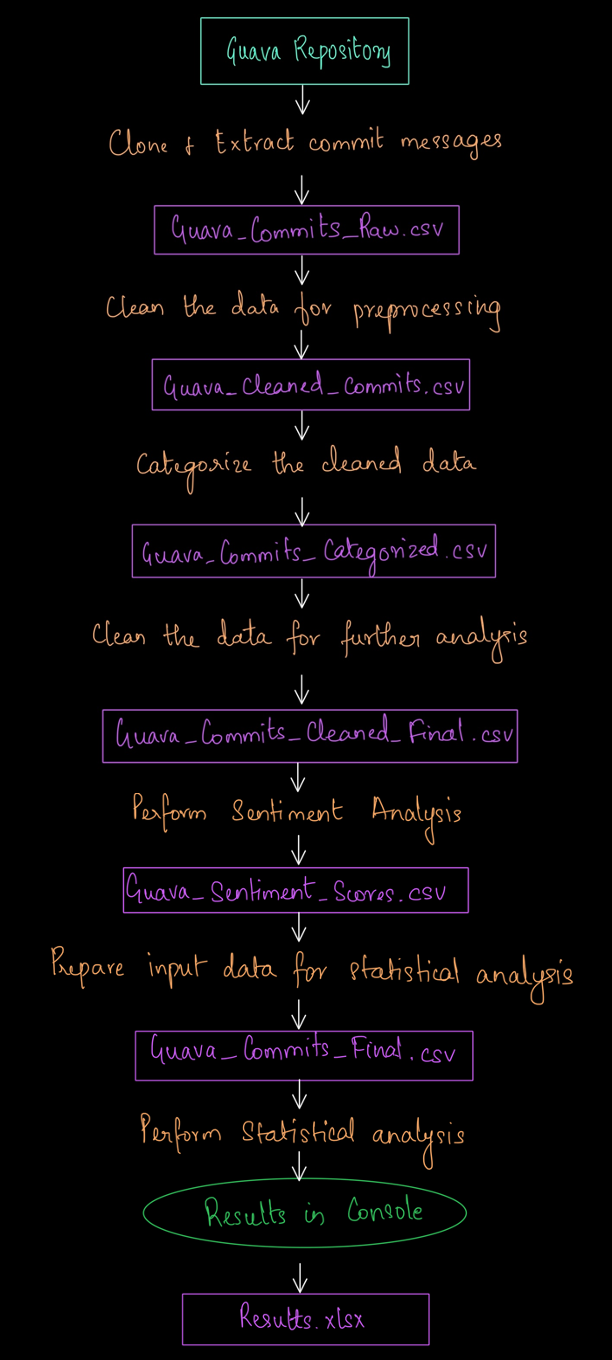 Guava Repository
Clone & Extract commit messages
Guava_Commits_Raw.csv
Clean the data for preprocessing
Guava_Cleaned_Commits.csv
Categorize the cleaned data
Guava_Commits_Categorized.csv
Clean the data for further analysis
Guava_Commits_Cleaned_Final.csv
Perform Sentiment Analysis
Guava_Sentiment_Scores.csv
Prepare input data for statistical analysis
Guava_Commits_Final.csv
Perform Statistical analysis
Results in Console
Results.xlsx